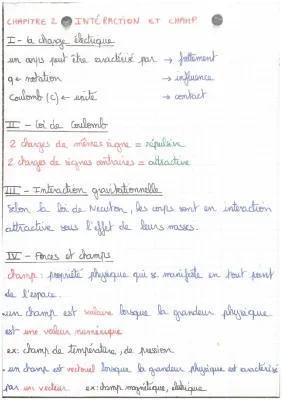 CHAPITRE 2 INTÉRACTION ET CHAMP
I - la charge électrique
un corps peut être caractérisé par → frottement
q ← notation → influence
Coulomb (C) ← unité → contact
II - Loi de Coulomb
2 charges de mêmes signe = répulsive
2 charges de signes contraires = attractive
III - Interaction gravitationnelle
Selon la loi de Newton, les corps sont en interaction
attractive sous l'effet de leurs masses.
IV - Forces et champs
champ : propriété physique qui se manifeste en tout point
de l'espace.
- un champ est scalaire lorsque la grandeur physique
est une valeur numérique
ex : champ de température, de pression
- un champ est vectoriel lorsque la grandeur physique est caractérisé
par un vecteur ex : champ magnétique, électrique